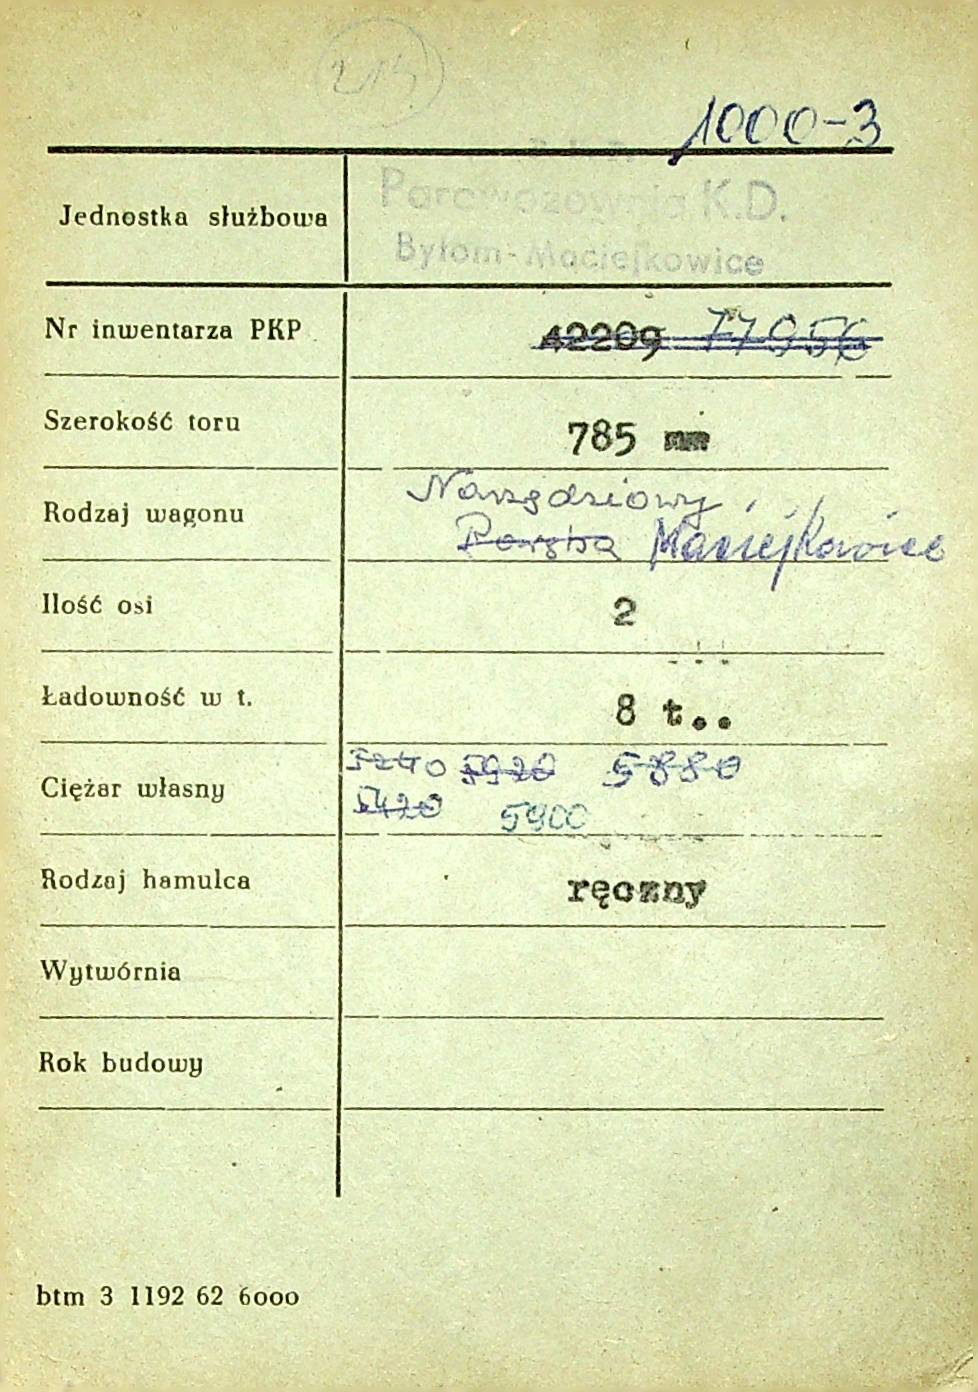 214
1000-3
Jednostka służbowa
Parowozownia K.D.
Bytom-Maciejkowice
Nr inwentarza PKP 42209 77956
Szerokość toru 785 mm
Rodzaj wagonu Narzędziowy
Maciejkowice
Ilość osi 2
Ładowność w t. 8 t..
Ciężar własny 5240 5920 5880
5420 5900
Rodzaj hamulca ręczny
Wytwórnia
Rok budowy
btm 3 1192 62 6000